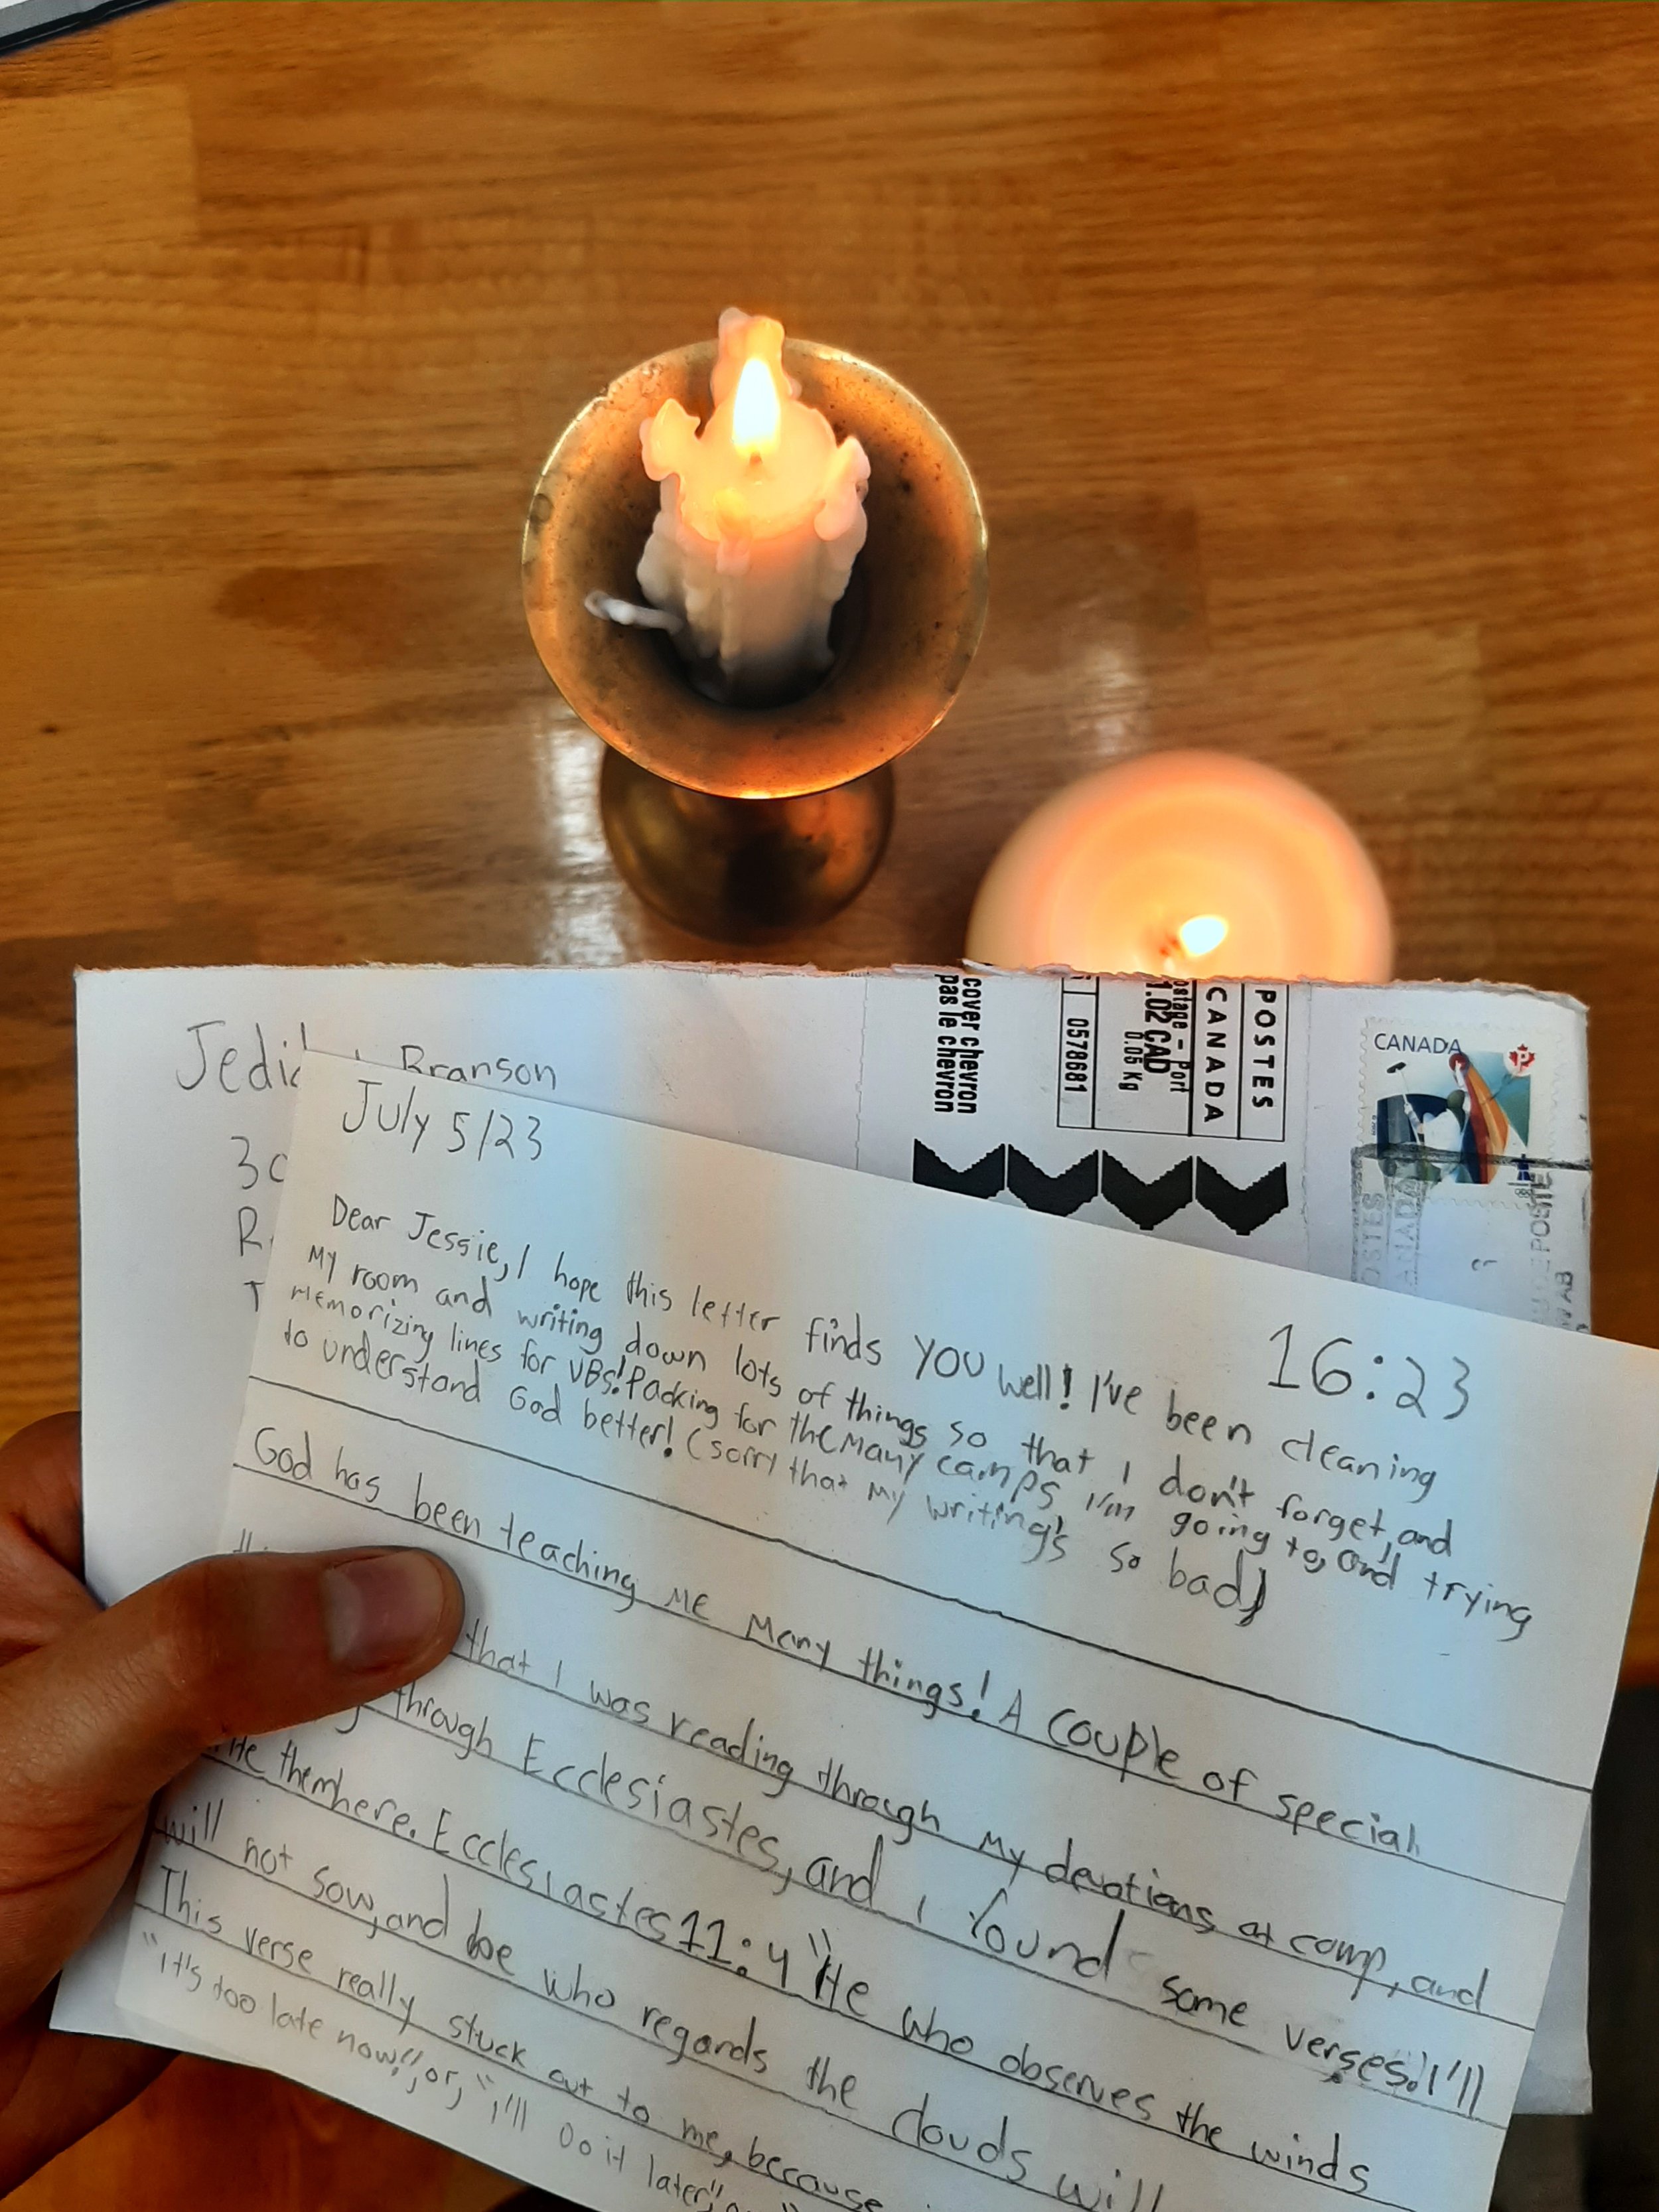 Branson
30
R
T
cover chevron
pas le chevron
0578681
Postage - Port
1.02 CAD
0.05 Kg
POSTES
CANADA
CANADA
P
POSTES
CANADA
July 5/23
16:23
Dear Jessie, I hope this letter finds you well! I've been cleaning
my room and writing down lots of things so that I don't forget, and
memorizing lines for VBS! Packing for the many camps I'm going to, and trying
to understand God better! (sorry that my writing's so bad)
God has been teaching me many things! A couple of special
that I was reading through my devotions at camp, and
through Ecclesiastes, and I found some verses! I'll
them here. Ecclesiastes 11:4 "He who observes the winds
will not sow, and he who regards the clouds will
This verse really stuck out to me, because
"it's too late now!", or, "I'll do it later",